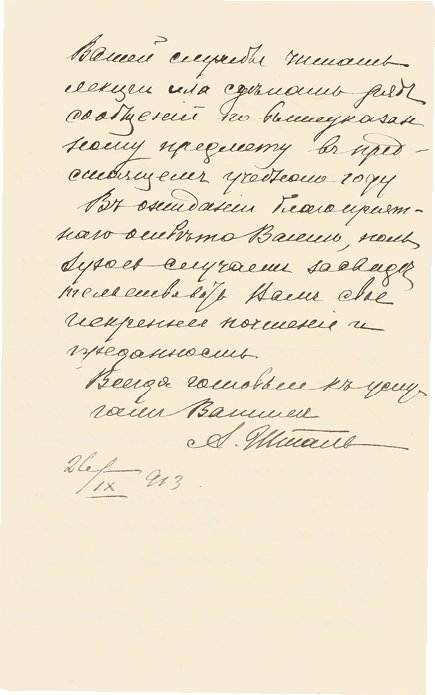 Вашей службѣ читать
лекціи или сдѣлать рядъ
сообщеній по вышеуказан
ному предмету въ пред-
стоящемъ учебномъ году
Въ ожиданіи благопріят-
наго отвѣта Вашего, поль
зуюсь случаемъ засвидѣ
тельствовать Вамъ свое
искреннее почтеніе и
преданность
Всегда готовый къ услу-
гамъ Вашимъ
А. Шталь
26/IX 913